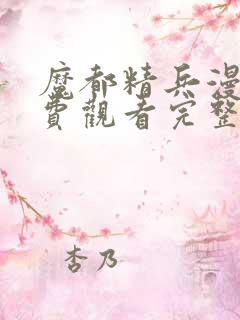 魔都精兵漫
費觀看完整
杏乃